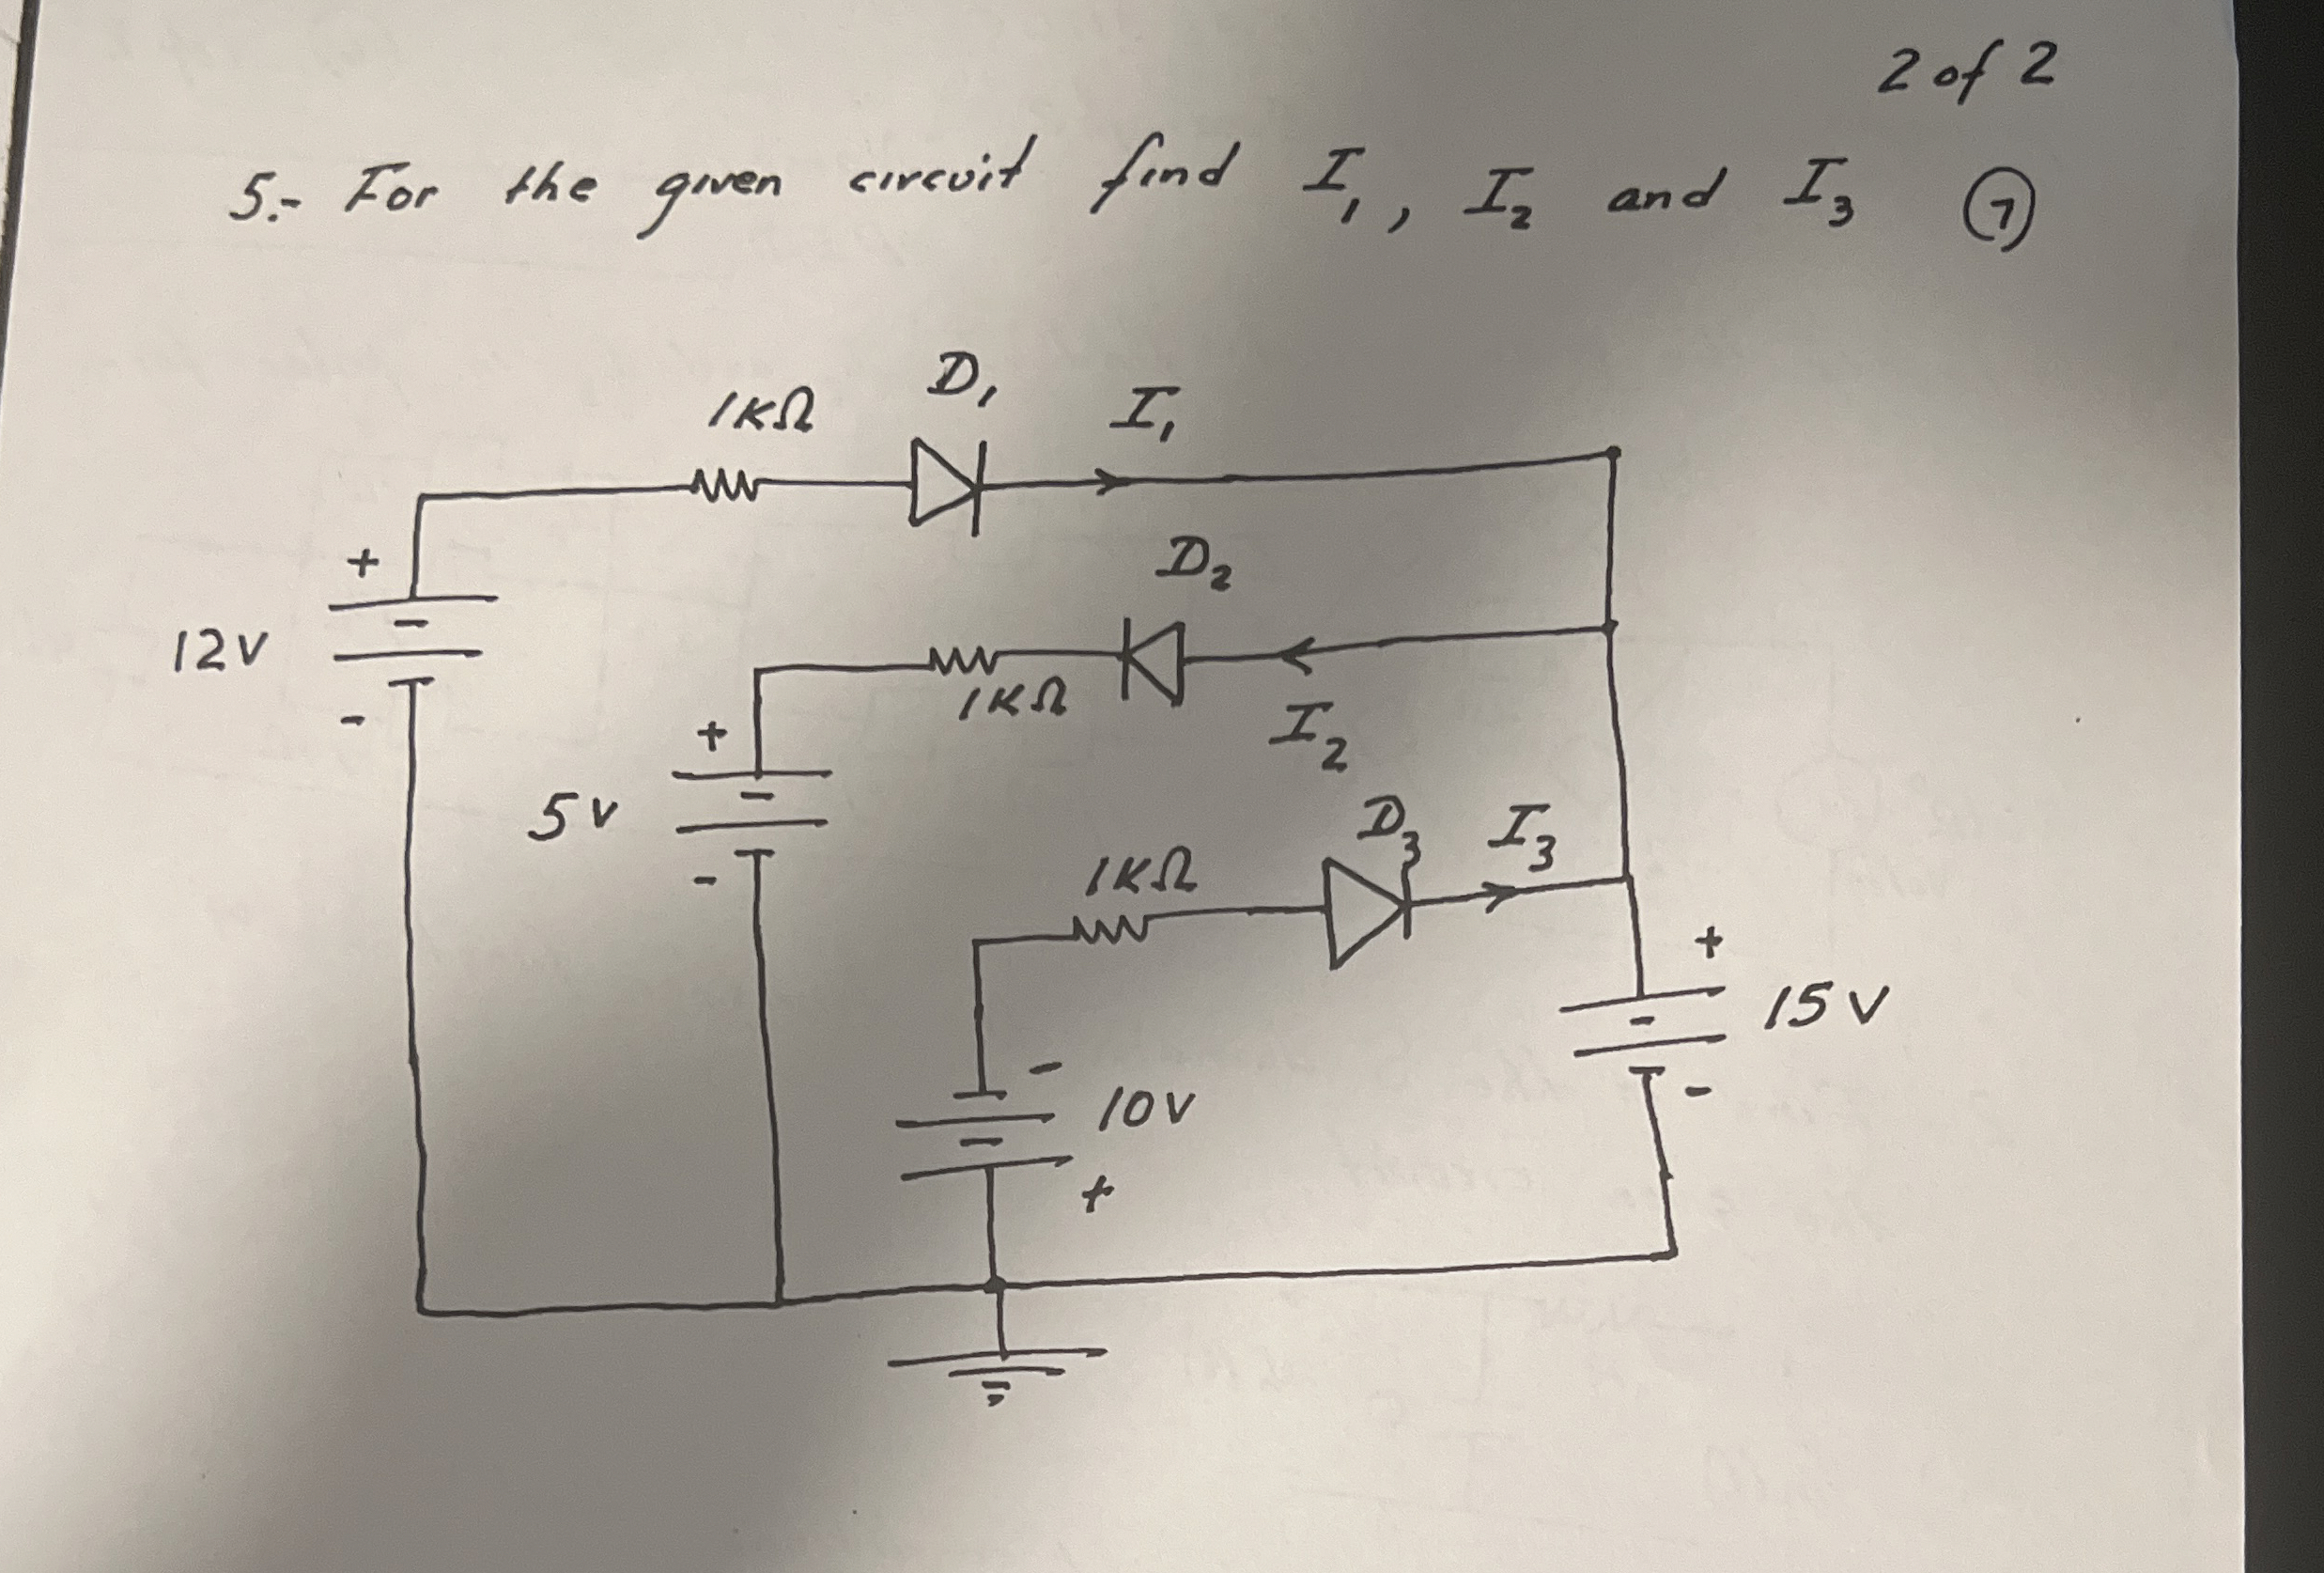 2 of 2
5.- For the given circuit find I₁, I₂ and I₃ ⑦
D₁
1KΩ
I₁
+
D₂
12V
-
1KΩ
I₂
+
5V
-
D₃
I₃
1KΩ
+
15V
-
-
10V
+